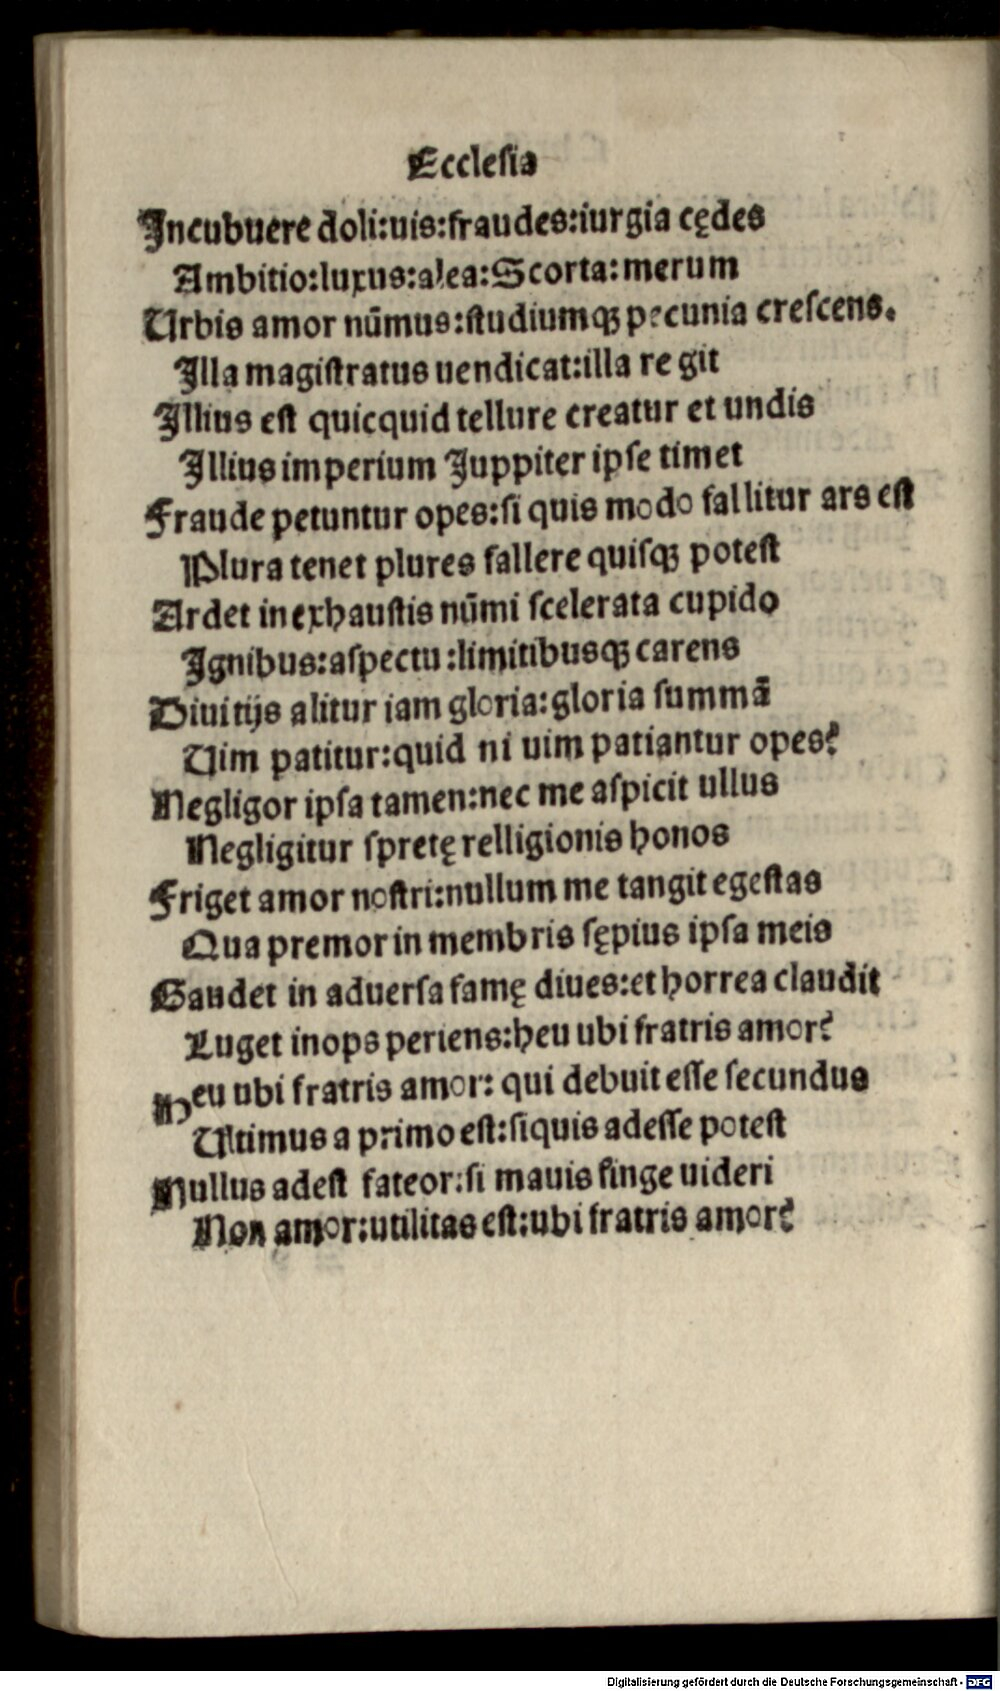 Ecclesia
Incubuere doli:uis:fraudes:iurgia cędes
Ambitio:luxus:alea:Scorta:merum
Urbis amor nūmus:ſtudiumqꝫ pecunia creſcens.
Illa magiſtratus uendicat:illa re git
Illius eſt quicquid tellure creatur et undis
Illius imperium Juppiter ipſe timet
Fraude petuntur opes:ſi quis modo fallitur ars eſt
Plura tenet plures fallere quiſqꝫ poteſt
Ardet inexhauſtis nūmi ſcelerata cupido
Ignibus:aſpectu:limitibusqꝫ carens
Diuitijs alitur iam gloria:gloria ſummā
Uim patitur:quid ni uim patiantur opes?
Negligor ipſa tamen:nec me aſpicit ullus
Negligitur ſpretę relligionis honos
Friget amor noſtri:nullum me tangit egeſtas
Qua premor in membris ſępius ipſa meis
Gaudet in aduerſa famę diues:et horrea claudit
Luget inops periens:heu ubi fratris amor?
Heu ubi fratris amor: qui debuit eſſe ſecundus
Ultimus a primo eſt:ſiquis adeſſe poteſt
Nullus adeſt fateor:ſi mauis finge uideri
Non amor:utilitas eſt:ubi fratris amor?
Digitalisierung gefördert durch die Deutsche Forschungsgemeinschaft - DFG